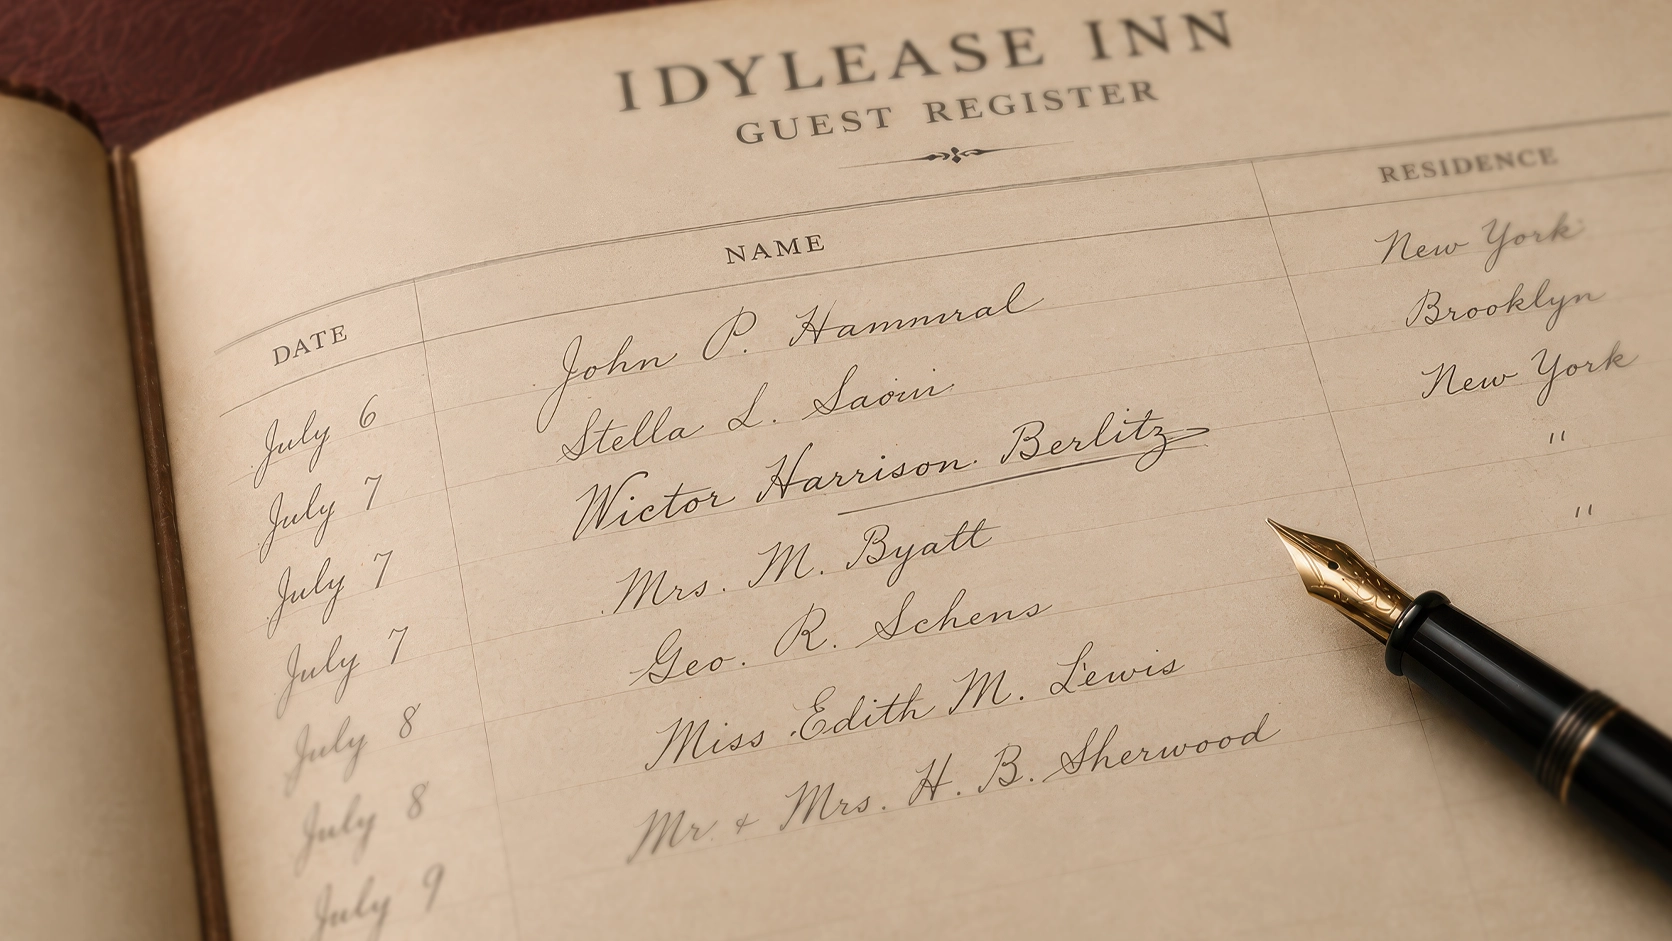 IDYLEASE INN
GUEST REGISTER
DATE NAME RESIDENCE
July 6 John P. Hammral New York
July 7 Stella L. Saoin Brooklyn
July 7 Wictor Harrison Berlitz New York
July 7 Mrs. M. Byatt "
July 8 Geo. R. Schens "
July 8 Miss Edith M. Lewis
July 9 Mr + Mrs. H. B. Sherwood